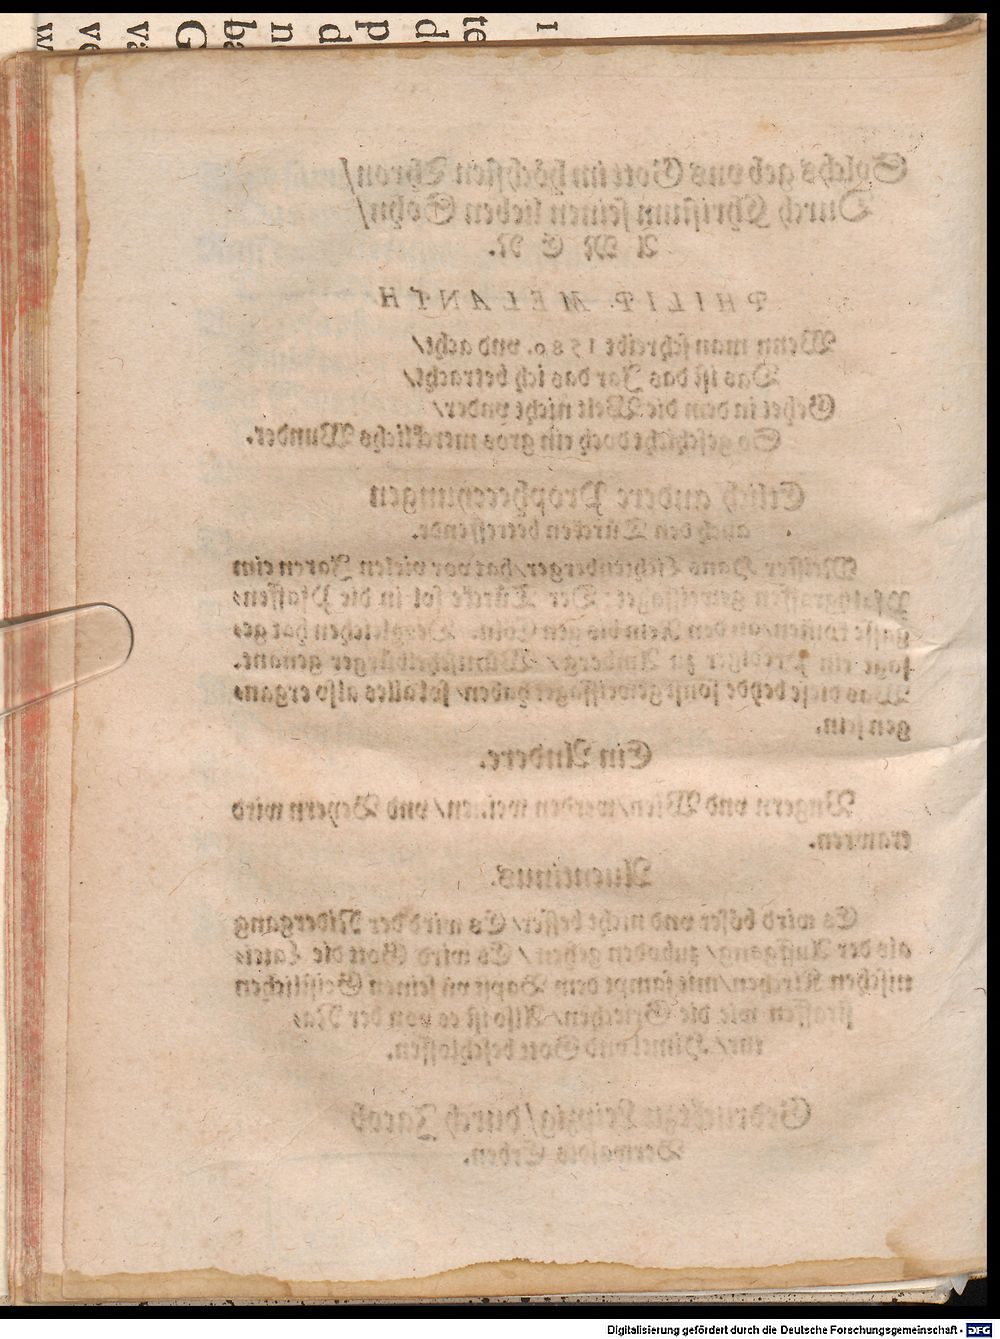 Solchs geb vns Gott im höchsten Thron/
Durch Christum seinen lieben Sohn/
A M E N.
PHILIP. MELANTH
Wenn man schreibt 1580. vnd acht/
Das ist das Jar das ich betracht/
Gehet in dem die Welt nicht vnder/
So geschicht doch ein gros mercklichs Wunder.
Etlich andere Propheceyungen
auch den Türcken betreffende.
Meister Hans Liechtenberger/hat vor vielen Jaren eim
Pfaltzgraffen geweissaget: Der Türcke sol in die Pfaffen-
gasse kommen/an den Rein bis gen Cöln. Dergleichen hat ge-
sagt ein Prediger zu Amberg/ genant.
Was diese beyde sonst geweissaget haben/ sol alles also ergan-
gen sein.
Ein Andere.
Vngern vnd Wien/werden weinen/ vnd Beyern wird
trawren.
Auentinus.
Es wird böser vnd nicht besser/ Es wird der Nidergang
als der Auffgang/ zuboden gehen/ Es wird Gott die Latei-
nischen Kirchen/ mit sampt dem Bapst vñ seinen Geistlichen
straffen wie die Griechen/ Also ist es von der Na-
tur/ Himel vnd Gott beschlossen.
Gedruckt zu Leipzig/ durch Jacob
Bermalds Erben.
Digitalisierung gefördert durch die Deutsche Forschungsgemeinschaft - DFG